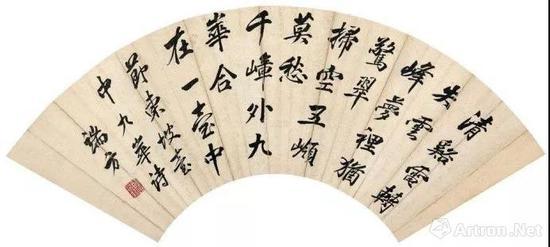 清谿電轉
失雲
峰夢裡猶
驚翠
掃空五嶺
莫愁
千嶂外九
華合
在一壺中
節東坡壺
中九華詩
端方
Artron.Net